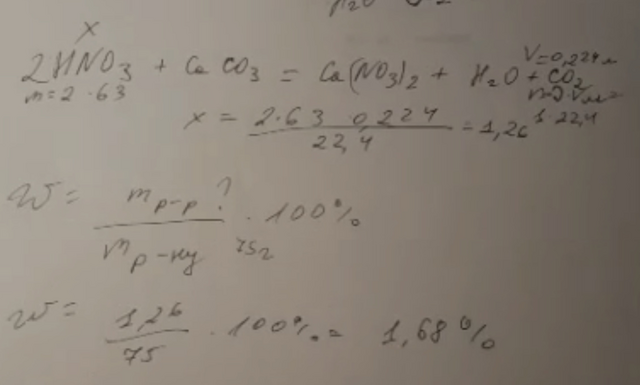 x
2HNO₃ + CaCO₃ = Ca(NO₃)₂ + H₂O + CO₂
V=0,224л
m=2·63
1·22,4
x = 2·63 0,224 / 22,4 = 1,26
w = m р-р ? / m р-ну 75г · 100%
w = 1,26 / 75 · 100% = 1,68%